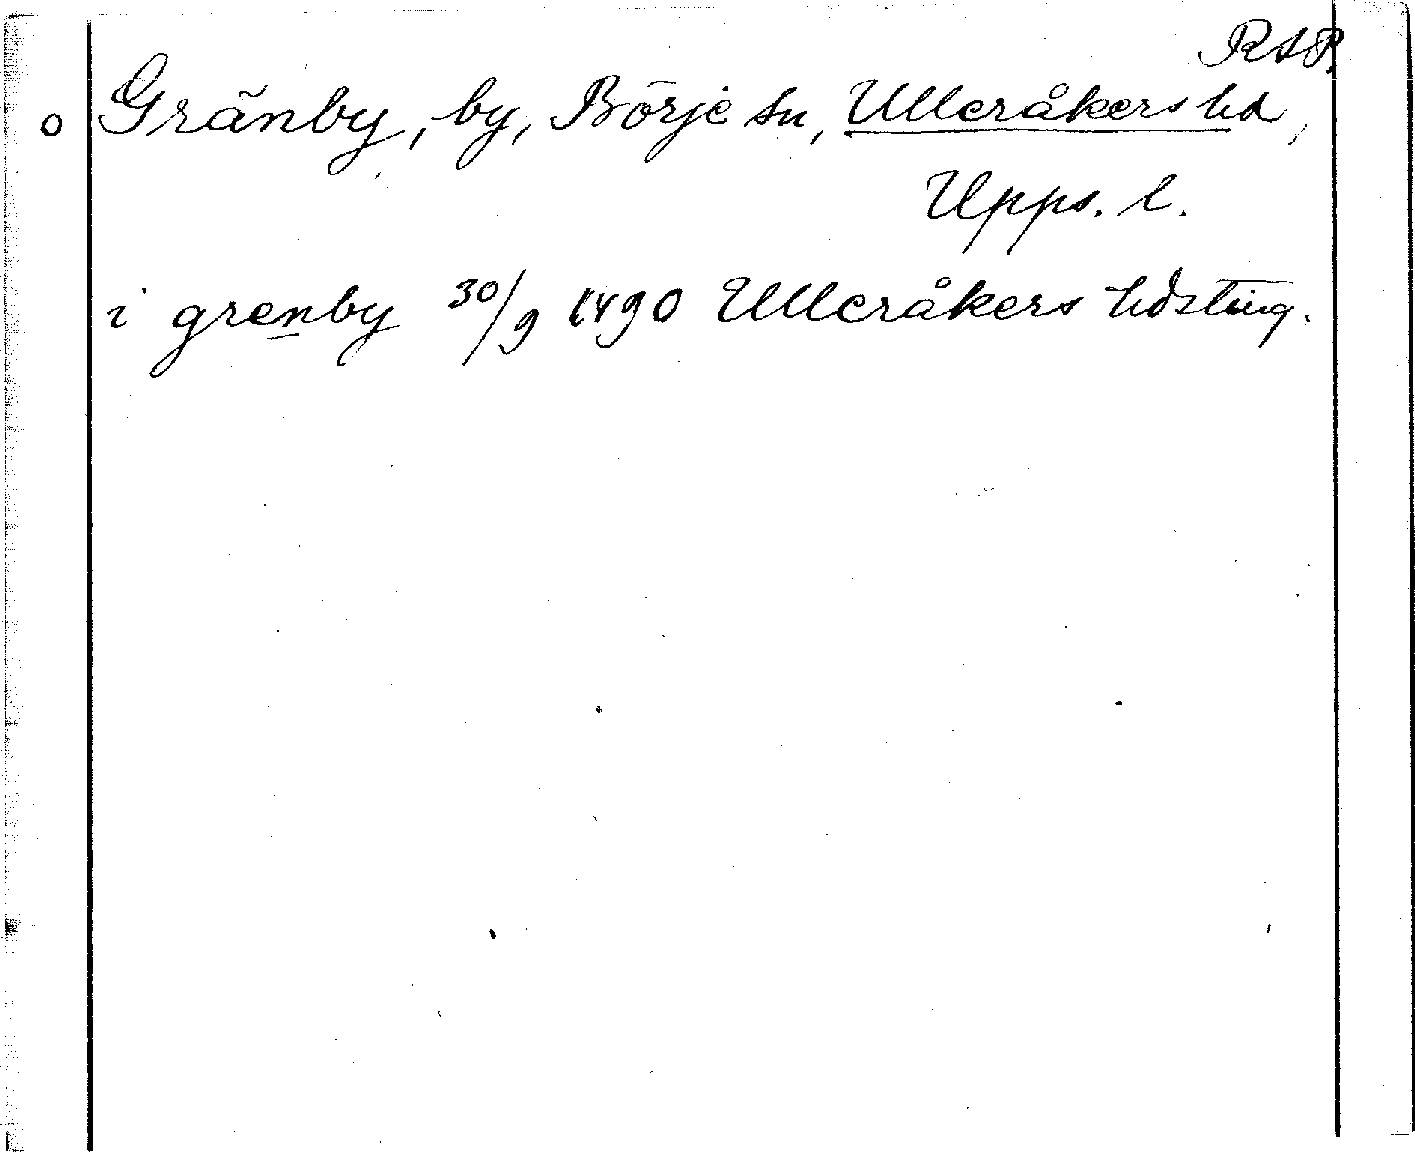 RAP.
o Gränby, by, Börje sn, Ulleråkers hd,
Upps. l.
i grenby 30/9 1490 Ulleråkers hdsting.